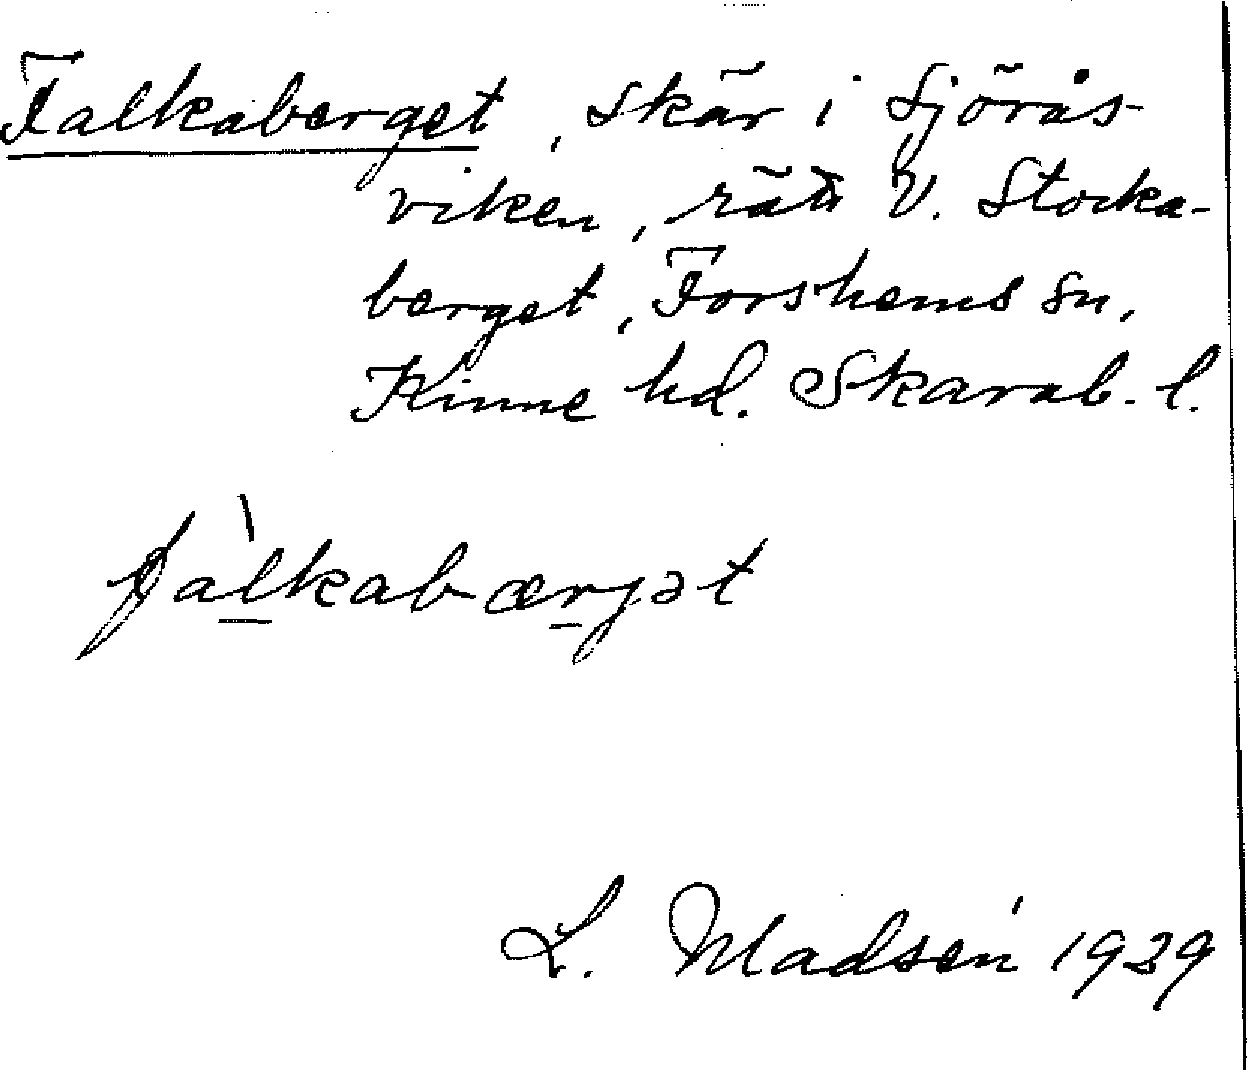 Falkaberget, skär i Sjörås-
viken, rätt V. Stocka-
berget, Forshems sn,
Kinne hd. Skarab. l.
fàlkabærjət
L. Madsén 1929